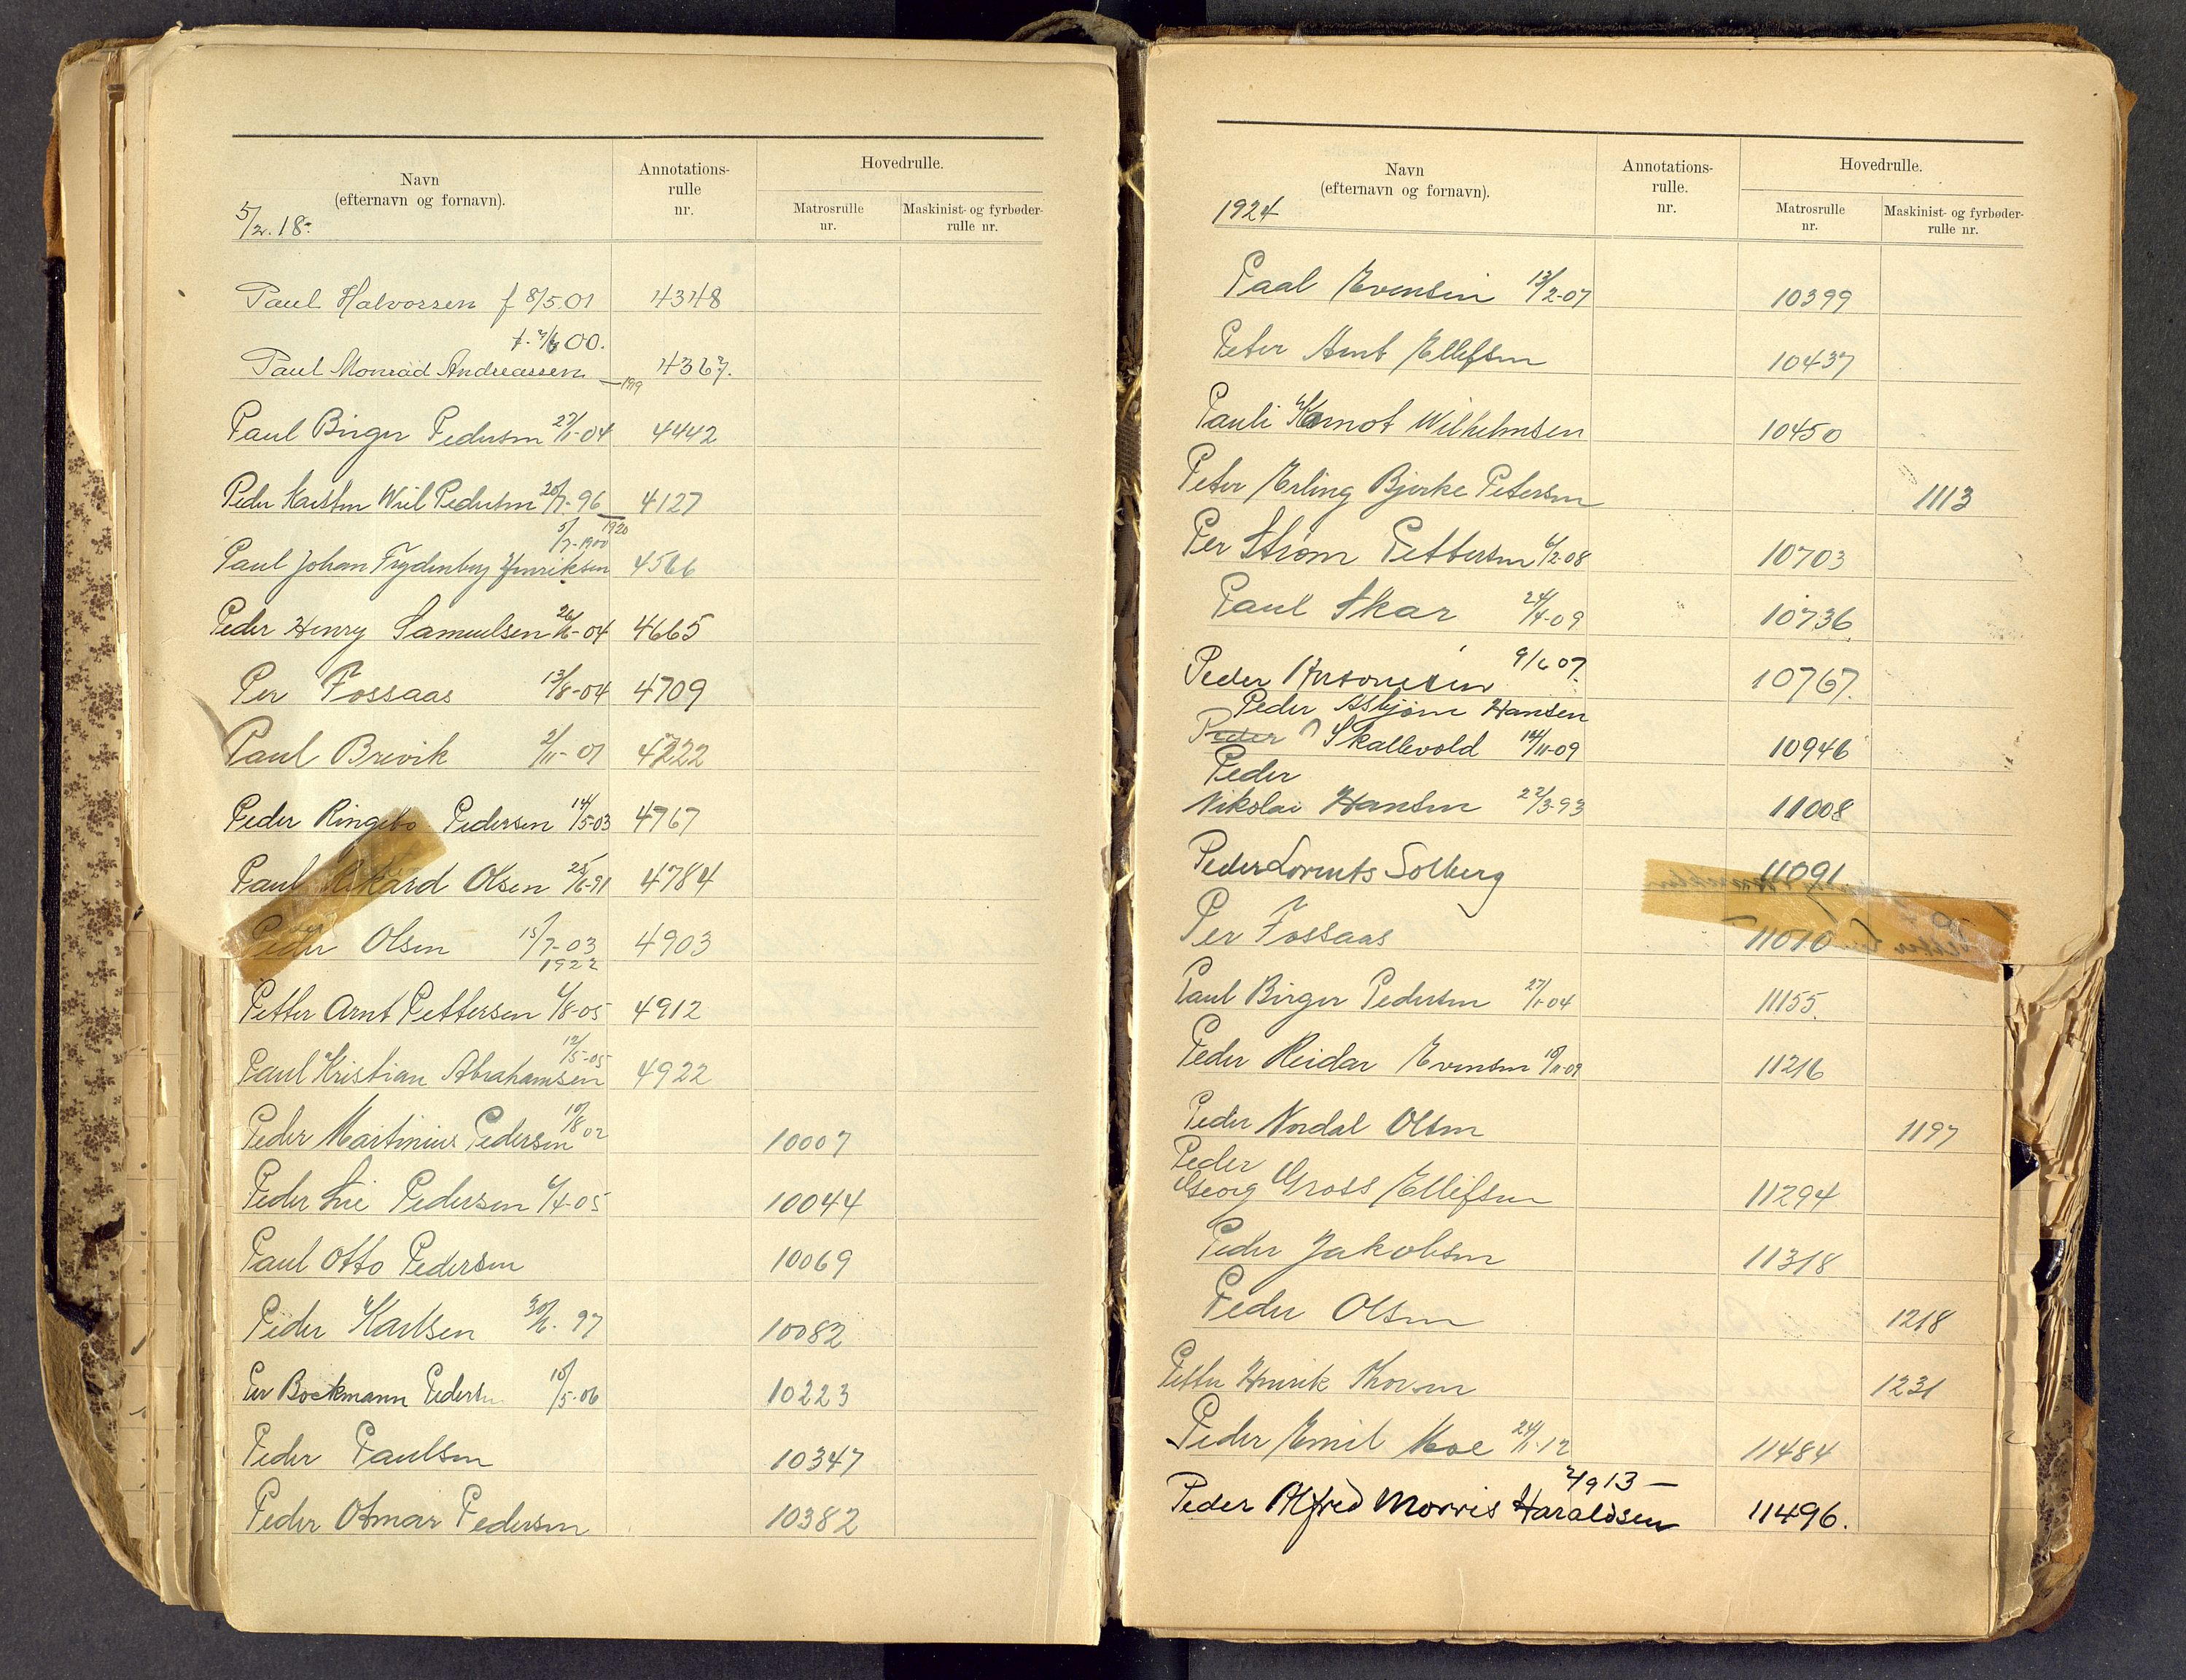 Navn
(efternavn og fornavn).
Annotations-
rulle
nr.
Hovedrulle.
Matrosrulle
nr.
Maskinist- og fyrbøder-
rulle nr.
5/2. 18.
Paul Halvorsen f 8/5.01 4348
f. 7/6 00.
Paul Monrad Andreassen 4367.
1919
Paul Birger Pedersen 27/1-04 4442
Peder Karsten Wiel Pedersen 20/7-96 4127
1920
5/7-1900
Paul Johan Frydenberg Henriksen 4566
Peder Henry Samuelsen 26/6-04 4665
Per Fossaas 13/8-04 4709
Paul Brevik 2/11-01 4722
Peder Ringebo Pedersen 14/5-03 4767
Paul Rikard Olsen 25/6-91 4784
Peder Olsen 15/7-03 4903
1922
Petter Arnt Pettersen 4/8-05 4912
12/5-05
Paul Kristian Abrahamsen 4922
Peder Martinius Pedersen 10/8 02 10007
Peder Lie Pedersen 6/4-05 10044
Paul Otto Pedersen 10069
Peder Karlsen 30/6-97 10082
Per Bockmann Peders 10/5-06 10223
Peder Paulsen 10347
Peder Otmar Pedersen 10382
Navn
(efternavn og fornavn).
Annotations-
rulle.
nr.
Hovedrulle.
Matrosrulle
nr.
Maskinist- og fyrbøder-
rulle nr.
1924
Paal Evensen 13/2-07 10399
Peter Arnt Ellefsen 10437
Pauli Karnot Wilhelmsen 10450
Peter Erling Bjerke Petersen 1113
Per Strøm Pettersen 6/2-08 10703
Paul Skar 24/4-09 10736
9/6 07.
Peder Antonesen 10767.
Peder Asbjørn Hansen
Peder Skallevold 14/11-09 10946
Peder
Nikolai Hansen 22/3-93 11008
Peder Lorents Solberg 11091
Per Fossaas 11010
Paul Birger Pedersen 27/1-04 11155.
Peder Reidar Evensen 10/11-09 11216
Peder Nordal Olsen 1197
Peder
Georg Gross Ellefsen 11294
Peder Jakobsen 11318
Peder Olsen 1218
Petter Henrik Thorsen 1231
Peder Emil Moe 24/1-12 11484
2/9 13 —
Peder Alfred Morris Haraldsen 11496.